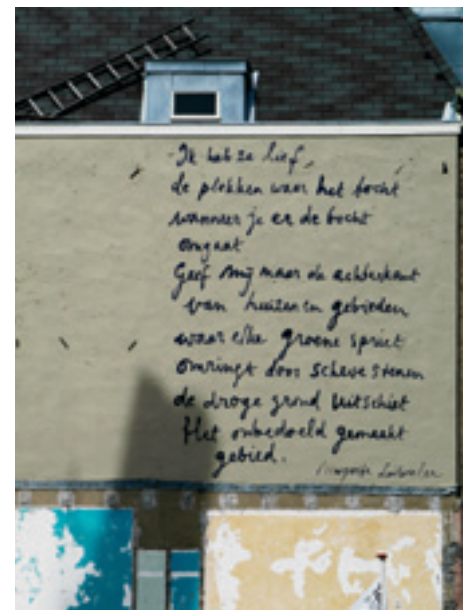 Ik heb ze lief,
de plekken waar het tocht
wanneer je er de bocht
omgaat
Geef mij maar de achterkant
van huizen en gebieden
waar elke groene spriet
omringt door scheve stenen
de droge grond uitschiet
Het onbedoeld gemaakt
gebied.